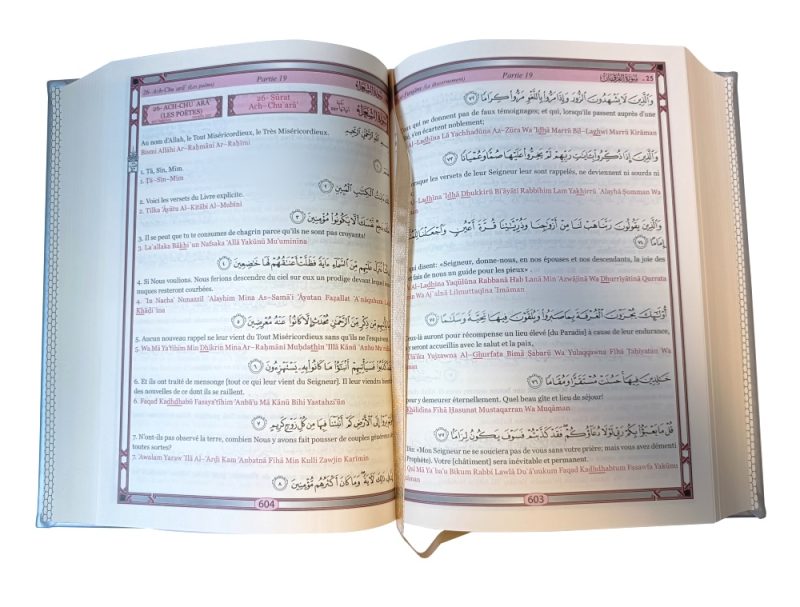 Partie 19
25 - سورة الفرقان
وَالَّذِينَ لَا يَشْهَدُونَ الزُّورَ وَإِذَا مَرُّوا بِاللَّغْوِ مَرُّوا كِرَامًا ٧٢
qui ne donnent pas de faux témoignages; et qui, lorsqu'ils passent auprès d'une
s'en écartent noblement;
Lā Yachhadūna Az-Zūra Wa 'Idhā Marrū Bil-Laghwi Marrū Kirāman
وَالَّذِينَ إِذَا ذُكِّرُوا بِآيَاتِ رَبِّهِمْ لَمْ يَخِرُّوا عَلَيْهَا صُمًّا وَعُمْيَانًا ٧٣
lorsque les versets de leur Seigneur leur sont rappelés, ne deviennent ni sourds ni
'Idhā Dhukkirū Bi'āyāti Rabbihim Lam Yakhirrū `Alayhā Şomman Wa
وَالَّذِينَ يَقُولُونَ رَبَّنَا هَبْ لَنَا مِنْ أَزْوَاجِنَا وَذُرِّيَّاتِنَا قُرَّةَ أَعْيُنٍ وَاجْعَلْنَا لِلْمُتَّقِينَ
إِمَامًا ٧٤
qui disent: «Seigneur, donne-nous, en nos épouses et nos descendants, la joie des
et fais de nous un guide pour les pieux» .
Yaqūlūna Rabbanā Hab Lanā Min 'Azwājinā Wa Dhurriyātinā Qurrata
Wa Aj`alnā Lilmuttaqīna 'Imāman
أُولَٰئِكَ يُجْزَوْنَ الْغُرْفَةَ بِمَا صَبَرُوا وَيُلَقَّوْنَ فِيهَا تَحِيَّةً وَسَلَامًا ٧٥
auront pour récompense un lieu élevé [du Paradis] à cause de leur endurance,
y seront accueillis avec le salut et la paix,
Yujzawna Al-Ghurfata Bimā Şabarū Wa Yulaqqawna Fīhā Taĥīyatan Wa
خَالِدِينَ فِيهَا حَسُنَتْ مُسْتَقَرًّا وَمُقَامًا ٧٦
pour y demeurer éternellement. Quel beau gîte et lieu de séjour!
Khālidīna Fīhā Ĥasunat Mustaqarran Wa Muqāman
قُلْ مَا يَعْبَأُ بِكُمْ رَبِّي لَوْلَا دُعَاؤُكُمْ فَقَدْ كَذَّبْتُمْ فَسَوْفَ يَكُونُ لِزَامًا ٧٧
Dis: «Mon Seigneur ne se souciera pas de vous sans votre prière; mais vous avez démenti
Prophète). Votre [châtiment] sera inévitable et permanent.
Qul Mā Ya`ba'u Bikum Rabbī Lawlā Du`ā'uukum Faqad Kadhdhabtum Fasawfa Yakūnu
603
26- Ach-Chu`arā' (Les poètes)
Partie 19
26- ACH-CHU`ARĀ'
(LES POÈTES)
26- Sūrat
Ach-Chu`arā'
سورة الشعراء
Au nom d'Allah, le Tout Miséricordieux, le Très Miséricordieux.
Bismi Allāhi Ar-Raĥmāni Ar-Raĥīmi
1. Tâ, Sîn, Mîm.
1. Ţā-Sīn-Mīm
تِلْكَ آيَاتُ الْكِتَابِ الْمُبِينِ ٢
2. Voici les versets du Livre explicite.
2. Tilka 'Āyātu Al-Kitābi Al-Mubīni
نَفْسَكَ أَلَّا يَكُونُوا مُؤْمِنِينَ ٣
3. Il se peut que tu te consumes de chagrin parce qu'ils ne sont pas croyants!
3. La`allaka Bākhi`un Nafsaka 'Allā Yakūnū Mu'uminīna
نُنَزِّلْ عَلَيْهِم مِّنَ السَّمَاءِ آيَةً فَظَلَّتْ أَعْنَاقُهُمْ لَهَا خَاضِعِينَ ٤
4. Si Nous voulions. Nous ferions descendre du ciel sur eux un prodige devant lequel
nuques resteront courbées.
4. 'In Nacha' Nunazzil `Alayhim Mina As-Samā'i 'Āyatan Fažallat 'A`nāquhum
Khāđi`īna
مِّن ذِكْرٍ مِّنَ الرَّحْمَٰنِ مُحْدَثٍ إِلَّا كَانُوا عَنْهُ مُعْرِضِينَ ٥
5. Aucun nouveau rappel ne leur vient du Tout Miséricordieux sans qu'ils ne l'esquivent.
5. Wa Mā Ya'tīhim Min Dhikrin Mina Ar-Raĥmāni Muĥdathin 'Illā Kānū `Anhu
فَسَيَأْتِيهِمْ أَنبَاءُ مَا كَانُوا بِهِ يَسْتَهْزِئُونَ ٦
6. Et ils ont traité de mensonge [tout ce qui leur vient du Seigneur]. Il leur viendra bientôt
des nouvelles de ce dont ils se raillent.
6. Faqad Kadhdhabū Fasaya'tīhim 'Anbā'u Mā Kānū Bihi Yastahzi'ūn
إِلَى الْأَرْضِ كَمْ أَنبَتْنَا فِيهَا مِن كُلِّ زَوْجٍ كَرِيمٍ ٧
7. N'ont-ils pas observé la terre, combien Nous y avons fait pousser de couples généreux
toutes sortes?
7. 'Awalam Yaraw 'Ilá Al-'Arđi Kam 'Anbatnā Fīhā Min Kulli Zawjin Karīmin
ذَٰلِكَ لَآيَةً وَمَا كَانَ أَكْثَرُهُم مُّؤْمِنِينَ ٨
604